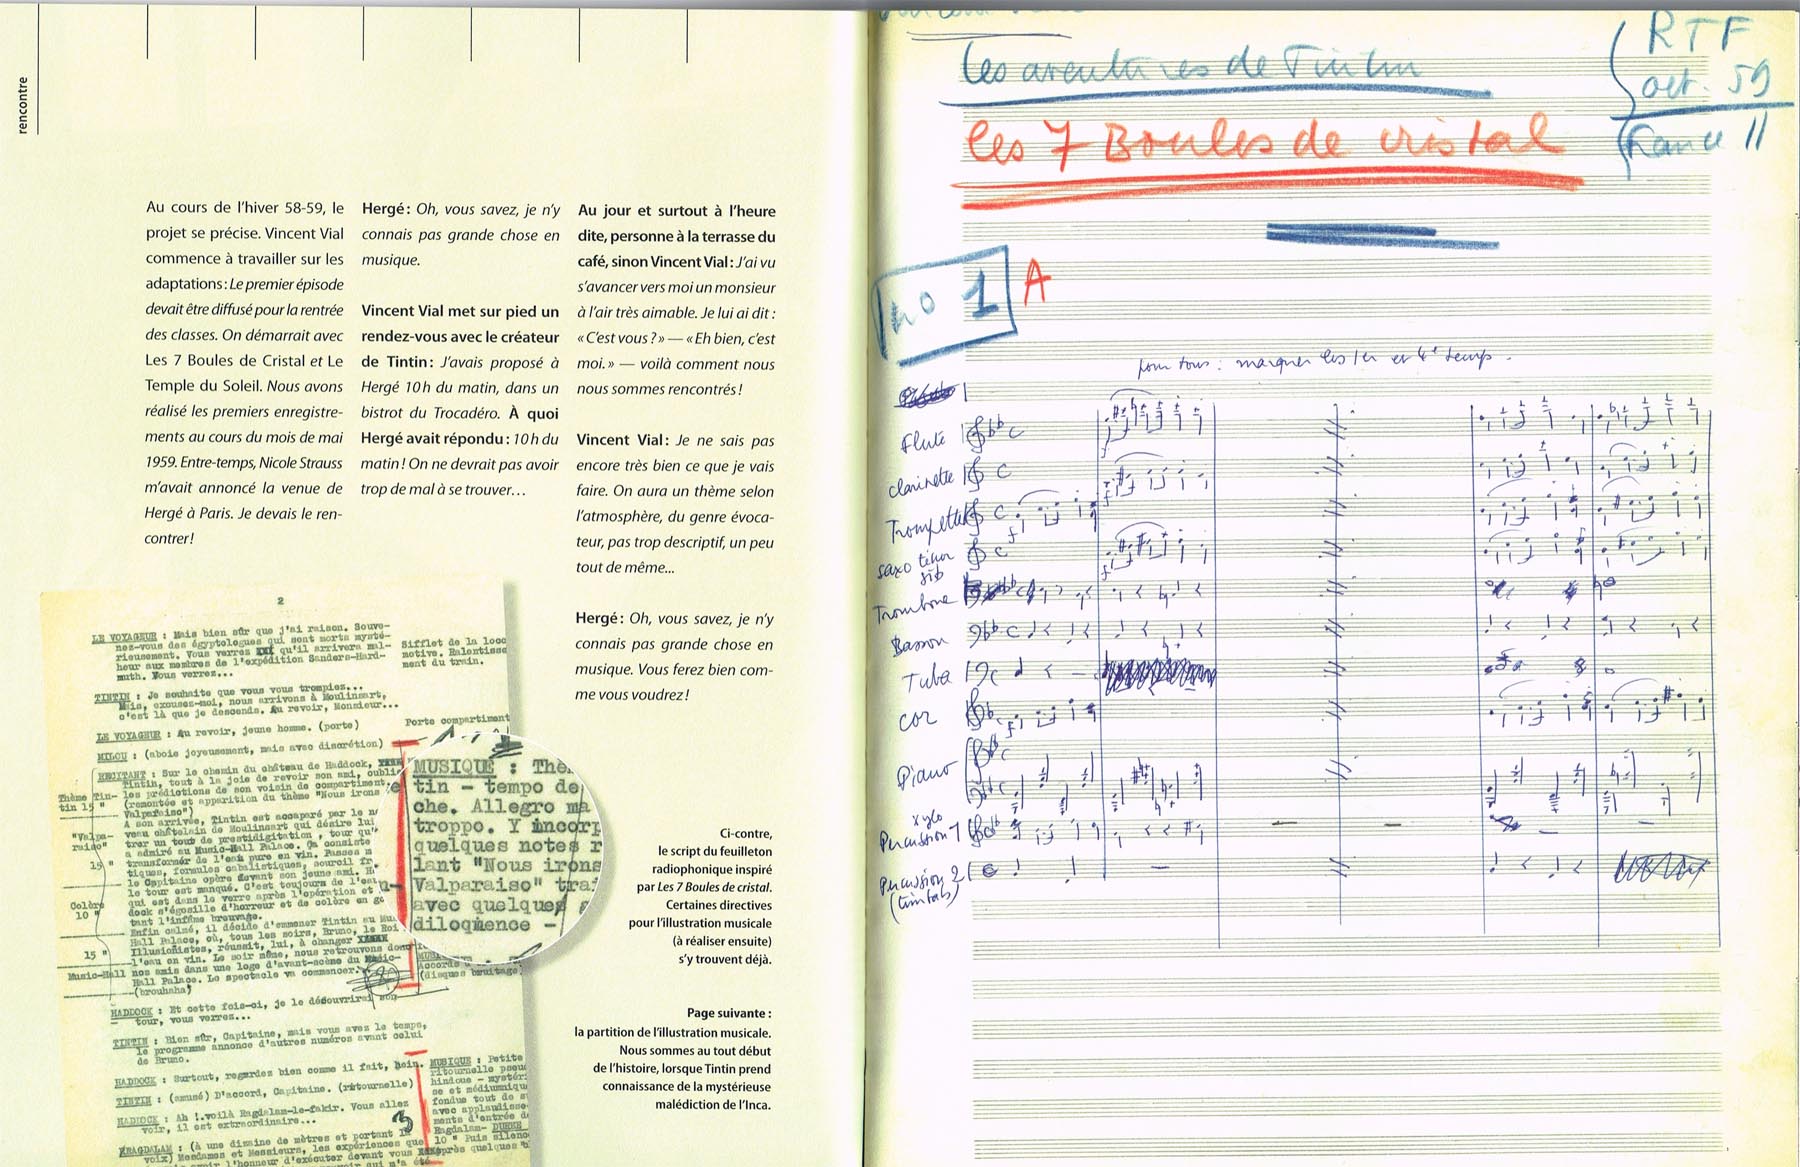 rencontre
Au cours de l'hiver 58-59, le
projet se précise. Vincent Vial
commence à travailler sur les
adaptations : Le premier épisode
devait être diffusé pour la rentrée
des classes. On démarrait avec
Les 7 Boules de Cristal et Le
Temple du Soleil. Nous avons
réalisé les premiers enregistre-
ments au cours du mois de mai
1959. Entre-temps, Nicole Strauss
m'avait annoncé la venue de
Hergé à Paris. Je devais le ren-
contrer !
Hergé : Oh, vous savez, je n'y
connais pas grande chose en
musique.
Vincent Vial met sur pied un
rendez-vous avec le créateur
de Tintin : J'avais proposé à
Hergé 10 h du matin, dans un
bistrot du Trocadéro. À quoi
Hergé avait répondu : 10 h du
matin ! On ne devrait pas avoir
trop de mal à se trouver…
Au jour et surtout à l'heure
dite, personne à la terrasse du
café, sinon Vincent Vial : J'ai vu
s'avancer vers moi un monsieur
à l'air très aimable. Je lui ai dit :
« C'est vous ? » — « Eh bien, c'est
moi. » — voilà comment nous
nous sommes rencontrés !
Vincent Vial : Je ne sais pas
encore très bien ce que je vais
faire. On aura un thème selon
l'atmosphère, du genre évoca-
teur, pas trop descriptif, un peu
tout de même...
Hergé : Oh, vous savez, je n'y
connais pas grande chose en
musique. Vous ferez bien com-
me vous voudrez !
2
LE VOYAGEUR : Mais bien sûr que j'ai raison. Souve-
nez-vous des égyptologues qui sont morts mysté-
rieusement. Vous verrez XXX qu'il arrivera mal-
heur aux membres de l'expédition Sanders-Hard-
muth. Vous verrez...
Sifflet de la loco
motive. Ralentisse
ment du train.
TINTIN : Je souhaite que vous vous trompiez...
Mais, excusez-moi, nous arrivons à Moulinsart,
c'est là que je descends. Au revoir, Monsieur...
Porte compartiment
LE VOYAGEUR : Au revoir, jeune homme. (porte)
MILOU : (aboie joyeusement, mais avec discrétion)
RECITANT : Sur le chemin du château de Haddock,
Tintin, tout à la joie de revoir son ami, oubli
les prédictions de son voisin de compartiment.
(remontée et apparition du thème "Nous irons
Valparaiso")
A son arrivée, Tintin est accaparé par le n
veau châtelain de Moulinsart qui désire lui
trer un tour de prestidigitation, tour qu'
a admiré au Music-Hall Palace. Ça consiste
transformer de l'eau pure en vin. Passes m
tiques, formules cabalistiques, sourcil fr
le Capitaine opère devant son jeune ami. H
le tour est manqué. C'est toujours de l'ea
qui est dans le verre après l'opération et
dock s'égosille d'horreur et de colère en go
tant l'infâme breuvage.
Enfin calmé, il décide d'emmener Tintin au Mu
Hall Palace, où, tous les soirs, Bruno, le Roi
Illusionistes, réussit, lui, à changer XXXXX
l'eau en vin. Le soir même, nous retrouvons donc
nos amis dans une loge d'avant-scène du Music-
Hall Palace. Le spectacle va commencer.
(brouhaha)
Thème Tin-
tin 15 "
"Valpa-
raiso"
15 "
Colère
10 "
15 "
Music-Hall
MUSIQUE : Thè
tin - tempo de
che. Allegro ma
troppo. Y incorp
quelques notes r
lant "Nous irons
Valparaiso" trai
avec quelques
diloquence -
Accords
(disques bruitage)
HADDOCK : Et cette fois-ci, je le découvrirai son
tour, vous verrez...
TINTIN : Bien sûr, Capitaine, mais vous avez le temps,
le programme annonce d'autres numéros avant celui
de Bruno.
HADDOCK : Surtout, regardez bien comme il fait, hein.
TINTIN : (amusé) D'accord, Capitaine. (ritournelle)
HADDOCK : Ah !.voilà Ragdalam-le-fakir. Vous allez
voir, il est extraordinaire...
3
MUSIQUE : Petite
ritournelle pseud
hindoue - mystéri
se et médiumniqu
fondue tout de su
avec applaudisse-
ments d'entrée de
Ragdalam- DUREE
10 " Puis silenc
après quelques
RAGDALAM : (à une dizaine de mètres et portant la
voix) Mesdames et Messieurs, les expériences que
l'honneur d'exécuter devant vous
Ci-contre,
le script du feuilleton
radiophonique inspiré
par Les 7 Boules de cristal.
Certaines directives
pour l'illustration musicale
(à réaliser ensuite)
s'y trouvent déjà.
Page suivante :
la partition de l'illustration musicale.
Nous sommes au tout début
de l'histoire, lorsque Tintin prend
connaissance de la mystérieuse
malédiction de l'Inca.
Les aventures de Tintin
RTF
oct. 59
France II
Les 7 Boules de cristal
no 1 A
pour tous : marquer les 1er et 4e temps.
Flute
clarinette
Trompette
saxo ténor
sib
Trombone
Basson
Tuba
cor
Piano
xylo
Percussion 1
Percussion 2
(timbales)